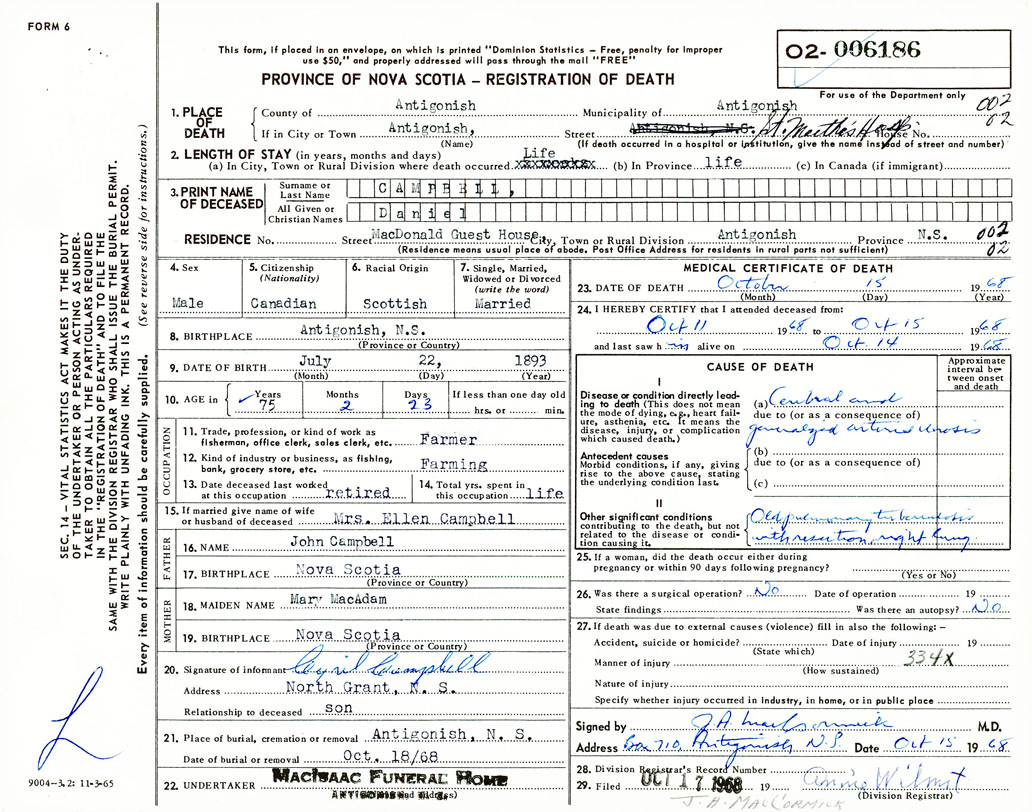 FORM 6
This form, if placed in an envelope, on which is printed "Dominion Statistics – Free, penalty for improper
use $50," and properly addressed will pass through the mail "FREE"
PROVINCE OF NOVA SCOTIA – REGISTRATION OF DEATH
O2- 006186
For use of the Department only
002
02
1. PLACE OF DEATH
County of Antigonish Municipality of Antigonish
If in City or Town Antigonish, Street Antigonish, N.S. St. Martha's Hosp. House No.
(Name) (If death occurred in a hospital or institution, give the name instead of street and number)
2. LENGTH OF STAY (in years, months and days)
(a) In City, Town or Rural Division where death occurred Life (b) In Province life (c) In Canada (if immigrant)
3. PRINT NAME OF DECEASED
Surname or Last Name CAMPBELL,
All Given or Christian Names Daniel
RESIDENCE No. Street MacDonald Guest House City, Town or Rural Division Antigonish Province N.S. 002
(Residence means usual place of abode. Post Office Address for residents in rural parts not sufficient) 02
4. Sex
Male
5. Citizenship
(Nationality)
Canadian
6. Racial Origin
Scottish
7. Single, Married,
Widowed or Divorced
(write the word)
Married
8. BIRTHPLACE Antigonish, N.S.
(Province or Country)
9. DATE OF BIRTH July 22, 1893
(Month) (Day) (Year)
10. AGE in Years 75 Months 2 Days 23 If less than one day old
hrs. or min.
OCCUPATION
11. Trade, profession, or kind of work as
fisherman, office clerk, sales clerk, etc. Farmer
12. Kind of industry or business, as fishing,
bank, grocery store, etc. Farming
13. Date deceased last worked
at this occupation retired
14. Total yrs. spent in
this occupation life
15. If married give name of wife
or husband of deceased Mrs. Ellen Campbell
FATHER
16. NAME John Campbell
17. BIRTHPLACE Nova Scotia
(Province or Country)
MOTHER
18. MAIDEN NAME Mary MacAdam
19. BIRTHPLACE Nova Scotia
(Province or Country)
20. Signature of informant Cyril Campbell
Address North Grant, N. S.
Relationship to deceased son
21. Place of burial, cremation or removal Antigonish, N. S.
Date of burial or removal Oct. 18/68
22. UNDERTAKER MACISAAC FUNERAL HOME
ANTIGONISH
MEDICAL CERTIFICATE OF DEATH
23. DATE OF DEATH October 15 1968
(Month) (Day) (Year)
24. I HEREBY CERTIFY that I attended deceased from:
Oct 11 1968 to Oct 15 1968
and last saw him alive on Oct 14 1968
CAUSE OF DEATH
Approximate interval between onset and death
I
Disease or condition directly leading to death (This does not mean
the mode of dying, e.g., heart failure, asthenia, etc. It means the
disease, injury, or complication
which caused death.)
(a) Cerebral and
due to (or as a consequence of)
generalized arteriosclerosis
Antecedent causes
Morbid conditions, if any, giving
rise to the above cause, stating
the underlying condition last.
(b)
due to (or as a consequence of)
(c)
II
Other significant conditions
contributing to the death, but not
related to the disease or condition causing it.
Old pulmonary tuberculosis
with resection, right lung
25. If a woman, did the death occur either during
pregnancy or within 90 days following pregnancy?
(Yes or No)
26. Was there a surgical operation? No Date of operation 19
State findings Was there an autopsy? No
27. If death was due to external causes (violence) fill in also the following: –
Accident, suicide or homicide? Date of injury 19
(State which)
Manner of injury 334X
(How sustained)
Nature of injury
Specify whether injury occurred in Industry, in home, or in public place
Signed by J.A. MacCormick M.D.
Address Box 710, Antigonish N.S. Date Oct 15 1968
28. Division Registrar's Record Number
29. Filed OCT 17 1968 19 Annie Wilmot
(Division Registrar)
J. A. MACCORMICK
SEC. 14 – VITAL STATISTICS ACT MAKES IT THE DUTY
OF THE UNDERTAKER OR PERSON ACTING AS UNDERTAKER TO OBTAIN ALL THE PARTICULARS REQUIRED
IN THE "REGISTRATION OF DEATH" AND TO FILE THE
SAME WITH THE DIVISION REGISTRAR WHO SHALL ISSUE THE BURIAL PERMIT.
WRITE PLAINLY WITH UNFADING INK. THIS IS A PERMANENT RECORD.
Every item of information should be carefully supplied. (See reverse side for instructions.)
9004–3.2: 11-3-65